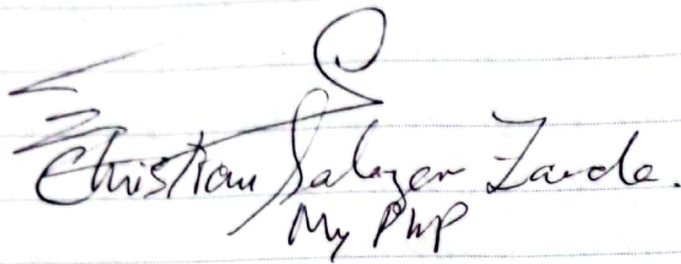 Christian Salazar Zande.
My PHP